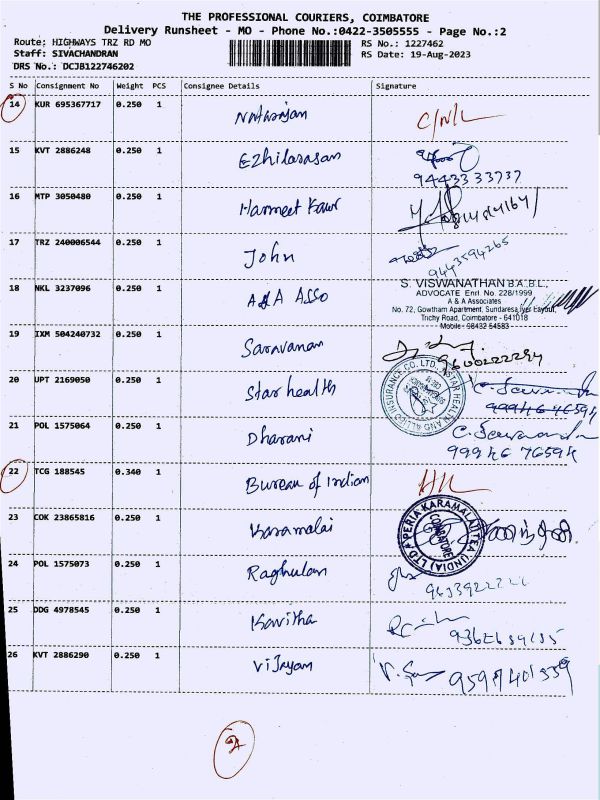 THE PROFESSIONAL COURIERS, COIMBATORE
Delivery Runsheet - MO - Phone No.:0422-3505555 - Page No.:2
Route: HIGHWAYS TRZ RD MO RS No.: 1227462
Staff: SIVACHANDRAN RS Date: 19-Aug-2023
DRS No.: DCJB122746202
S No Consignment No Weight PCS Consignee Details Signature
14 KUR 695367717 0.250 1 Natarajan C/N/L
15 KVT 2886248 0.250 1 Ezhilarasan
9443333737
16 MTP 3050480 0.250 1 Harmeet Kaur
17 TRZ 240006544 0.250 1 John
9443594265
18 NKL 3237096 0.250 1 A&A Asso
S. VISWANATHAN B.A.,B.L.,
ADVOCATE Enrl. No. 228/1999
A & A Associates
No. 72, Gowtham Apartment, Sundaresa Iyer Layout,
Trichy Road, Coimbatore - 641018
Mobile: 98432 54583
19 IXM 504240732 0.250 1 Saravanan
20 UPT 2169050 0.250 1 Star health
STAR HEALTH AND ALLIED INSURANCE CO. LTD.
21 POL 1575064 0.250 1 Dharani
99946 76594
22 TCG 188545 0.340 1 Bureau of Indian
23 COK 23865816 0.250 1 Karamalai
PERIA KARAMALAI TEA (INDIA) LTD
COIMBATORE
24 POL 1575073 0.250 1 Raghulan
25 DDG 4978545 0.250 1 Kavitha
26 KVT 2886290 0.250 1 Vijayan